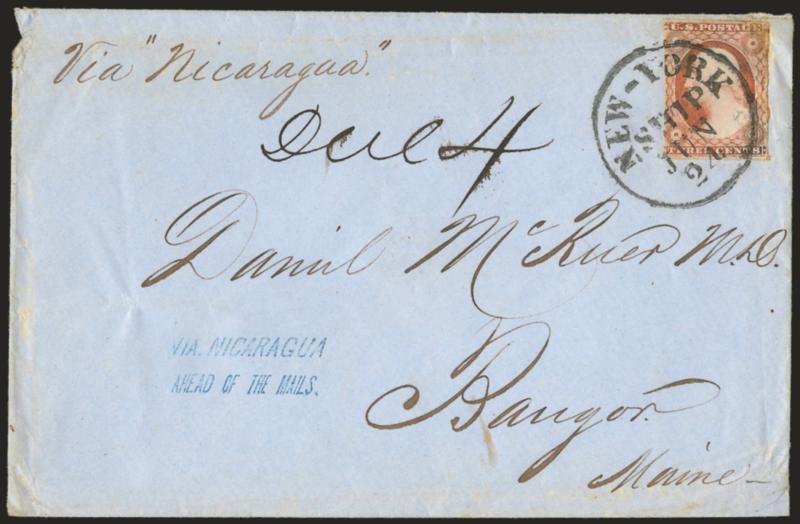 Via "Nicaragua."
U.S. POSTAGE
NEW-YORK
SHIP
JUN
24
THREE CENTS
Due 4
Daniel McRuer M.D.
VIA. NICARAGUA
AHEAD OF THE MAILS.
Bangor.
Maine